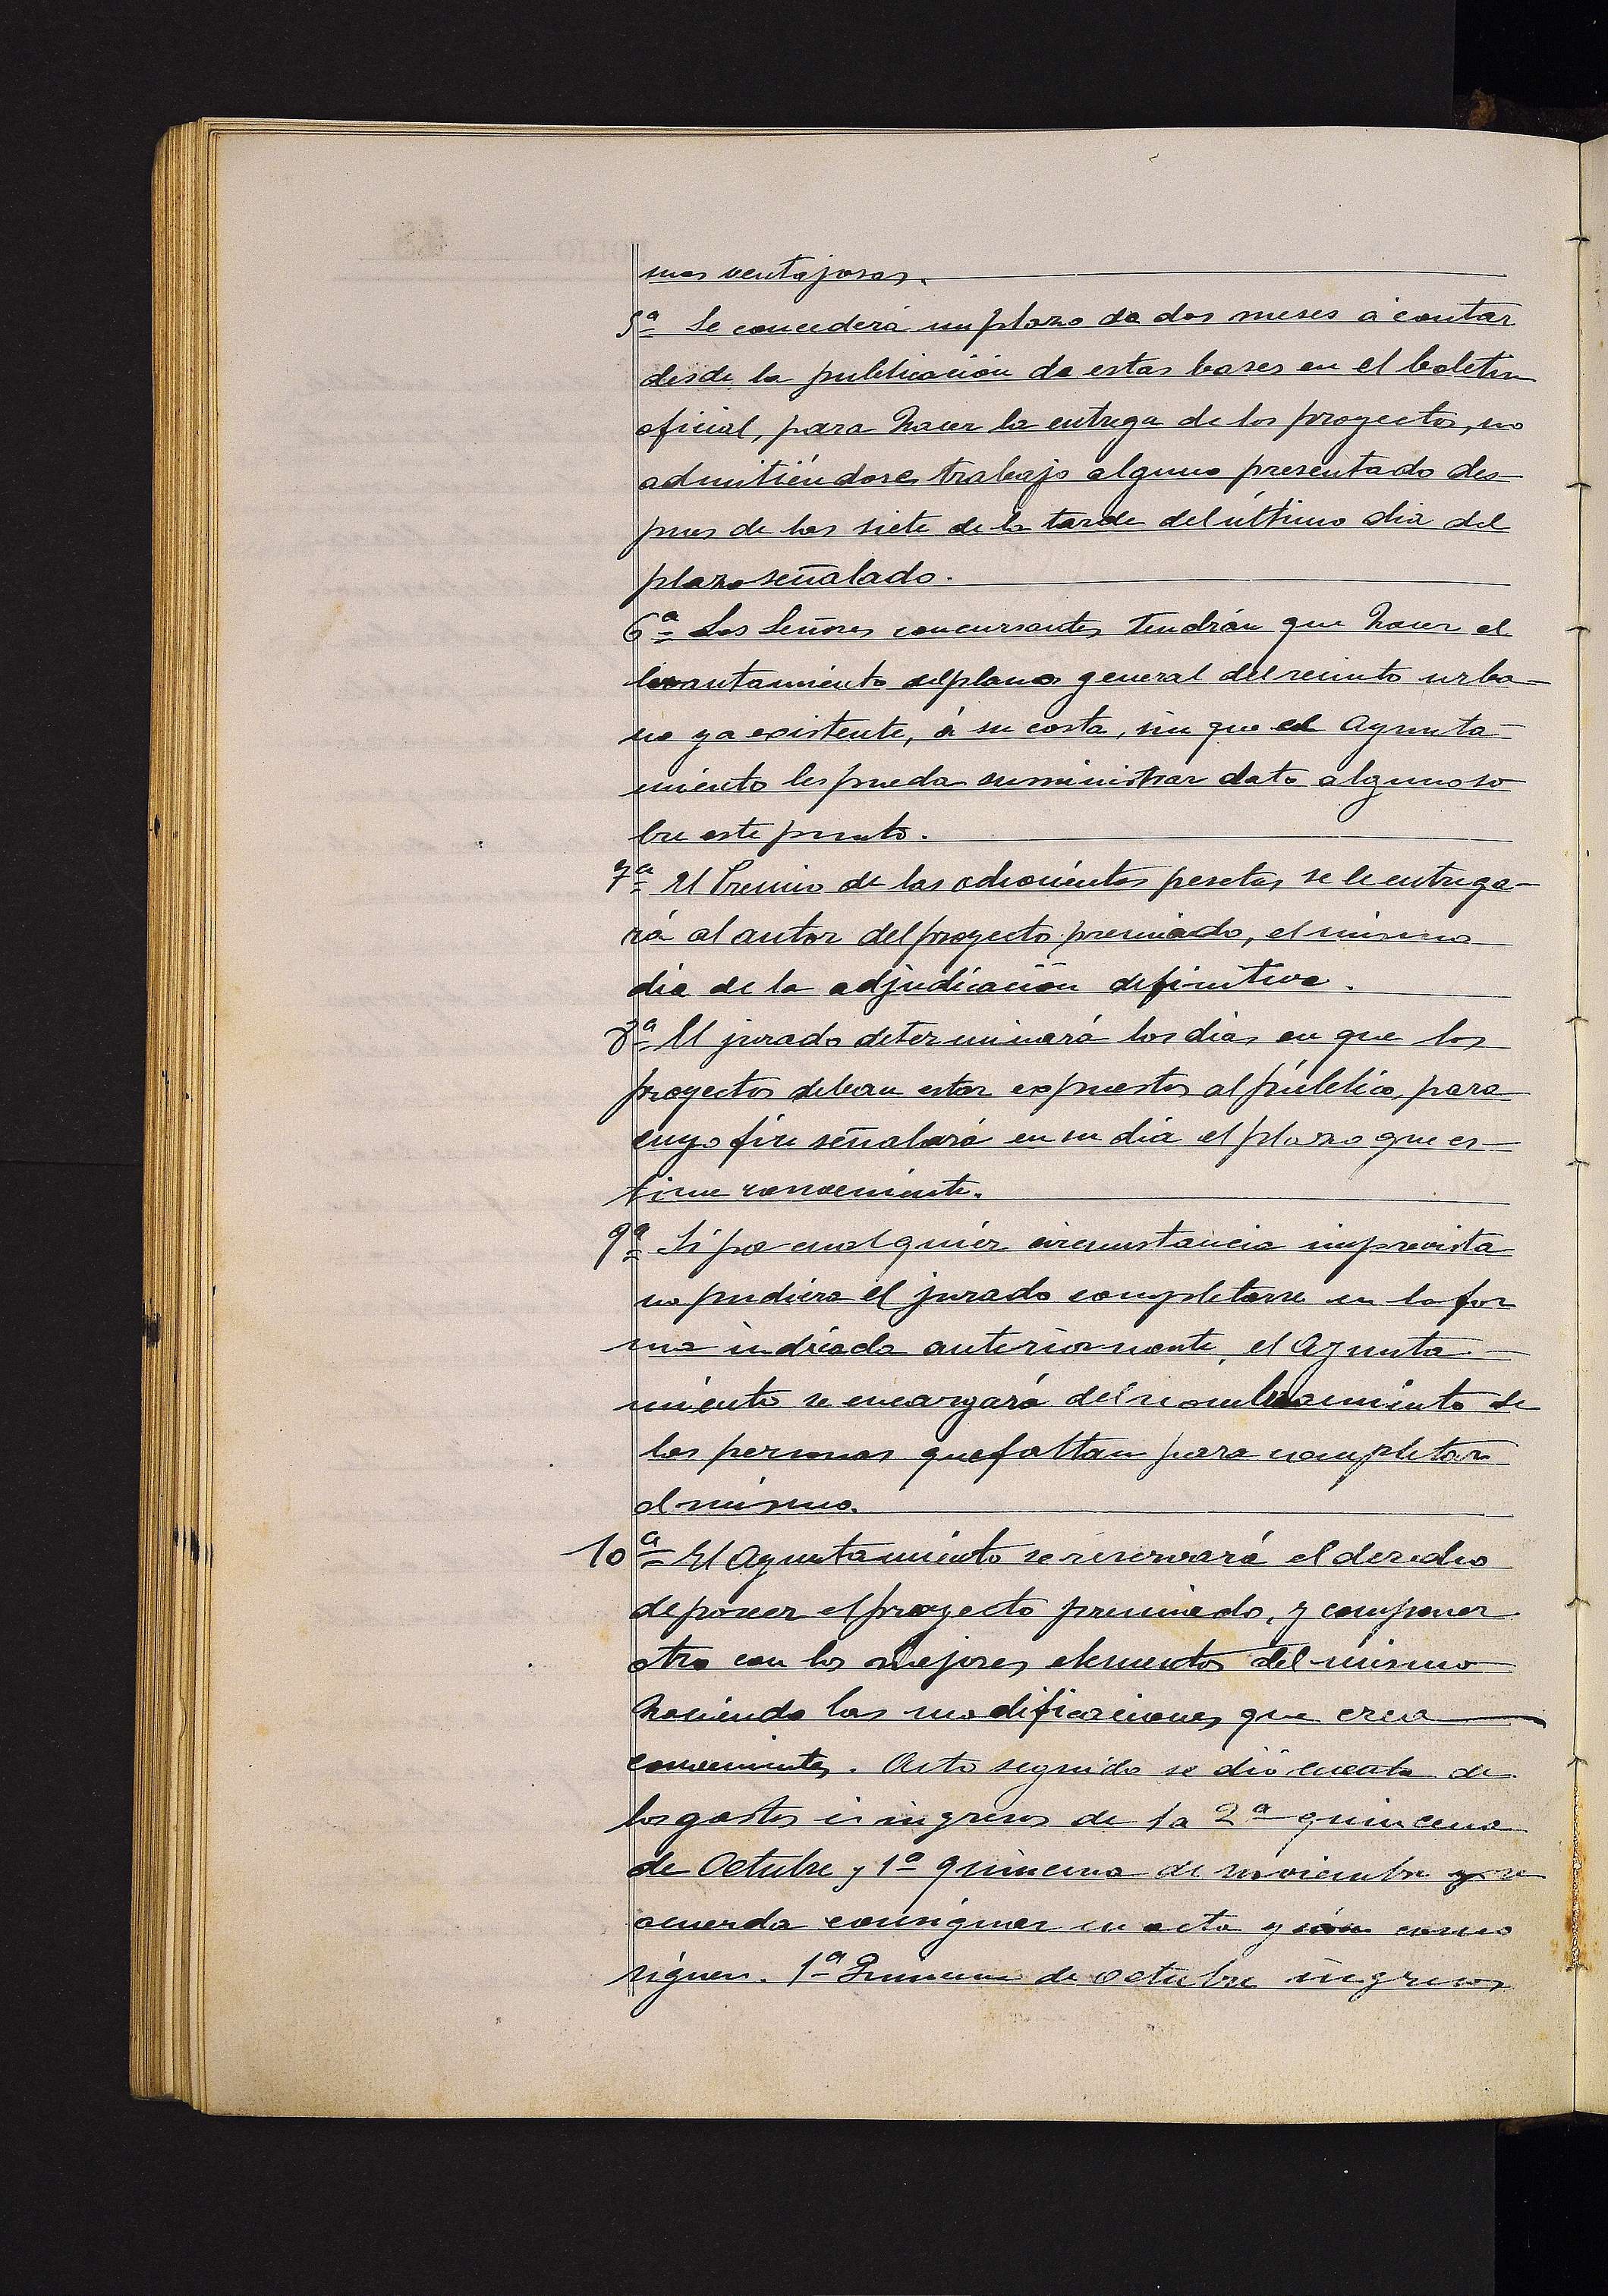 mas ventajosas.
5ª Se concederá un plazo de dos meses á contar
desde la publicación de estas bases en el boletin
oficial, para hacer la entrega de los proyectos, no
admitiéndose trabajo alguno presentado des-
pues de las siete de la tarde del último dia del
plazo señalado.
6ª Los Señores concursantes tendrán que hacer el
levantamiento del plano general del recinto urba-
no ya existente, á su costa, sin que el Ayunta-
miento les pueda suministrar dato alguno so
bre este punto.
7ª El Premio de las ochocientas pesetas se le entrega-
rá al autor del proyecto premiado, el mismo
dia de la adjudicación definitiva.
8ª El jurado determinará los dias en que los
proyectos deberan estar expuestos al público, para
cuyo fin señalará en su dia el plazo que es-
time conveniente.
9ª Si por cualquier circunstancia imprevista
no pudiera el jurado completarse en la for
ma indicada anteriormente, el Ayunta-
miento se encargará del nombramiento de
las personas que faltan para completar
el mismo.
10ª El Ayuntamiento se reservará el derecho
de poseer el proyecto premiado, y componer
otro con los mejores elementos del mismo
haciendo las modificaciones que crea
convenientes. Acto seguido se dió cuenta de
los gastos é ingresos de la 2ª quincena
de Octubre y 1ª quincena de noviembre y se
acuerda consignar en acta y como
siguen. 1ª Quincena de octubre ingresos